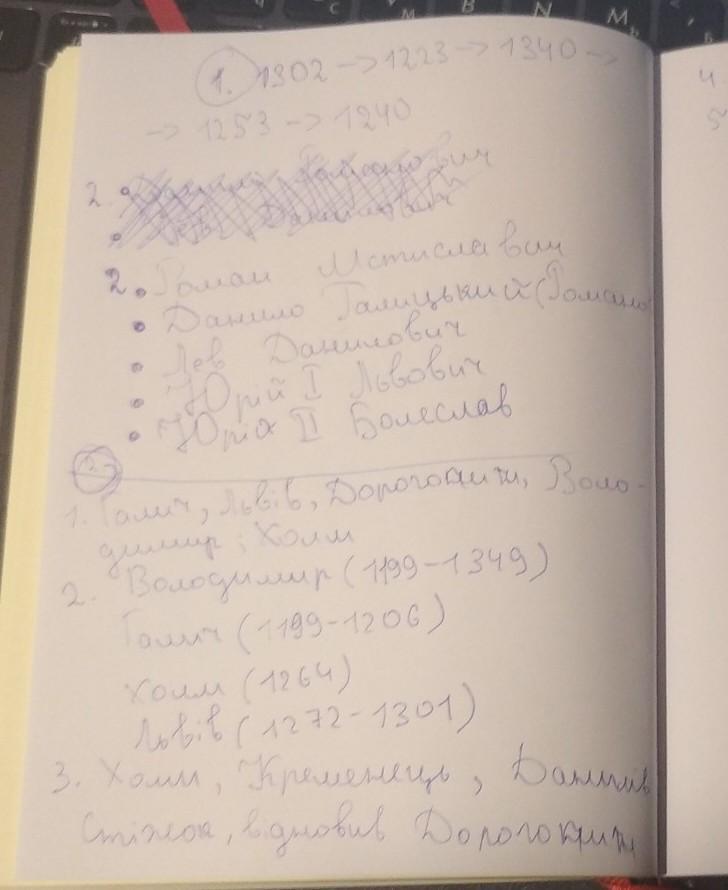 1. 1302 -> 1223 -> 1340 ->
-> 1253 -> 1240
2.
Данилович
2. Роман Мстиславич
Данило Галицький (Романо
Лев Данилович
Юрій I Львович
Юрій II Болеслав
2.
1. Галич, Львів, Дорогочин, Воло-
димир, Холм
2. Володимир (1199-1349)
Галич (1199-1206)
Холм (1264)
Львів (1272-1301)
3. Холм, Кременець, Данилів
Стіжок, відновив Дорогочин
4
5